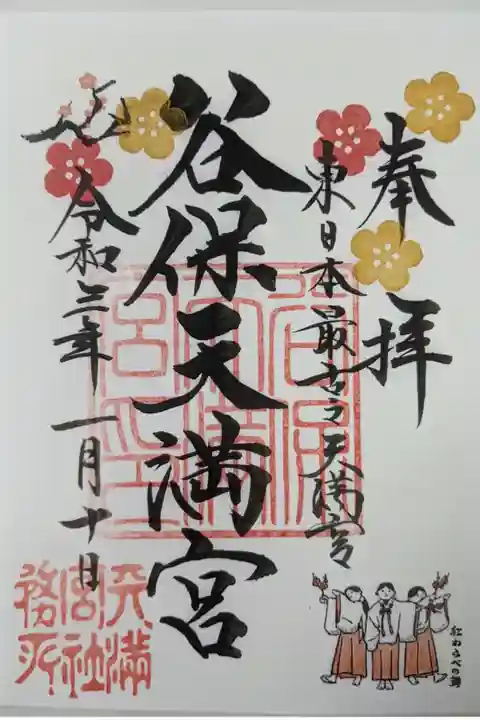 奉拝
東日本最古之天満宮
谷保天満宮
令和三年一月十日
天満
宮社
務所
紅わらべの舞